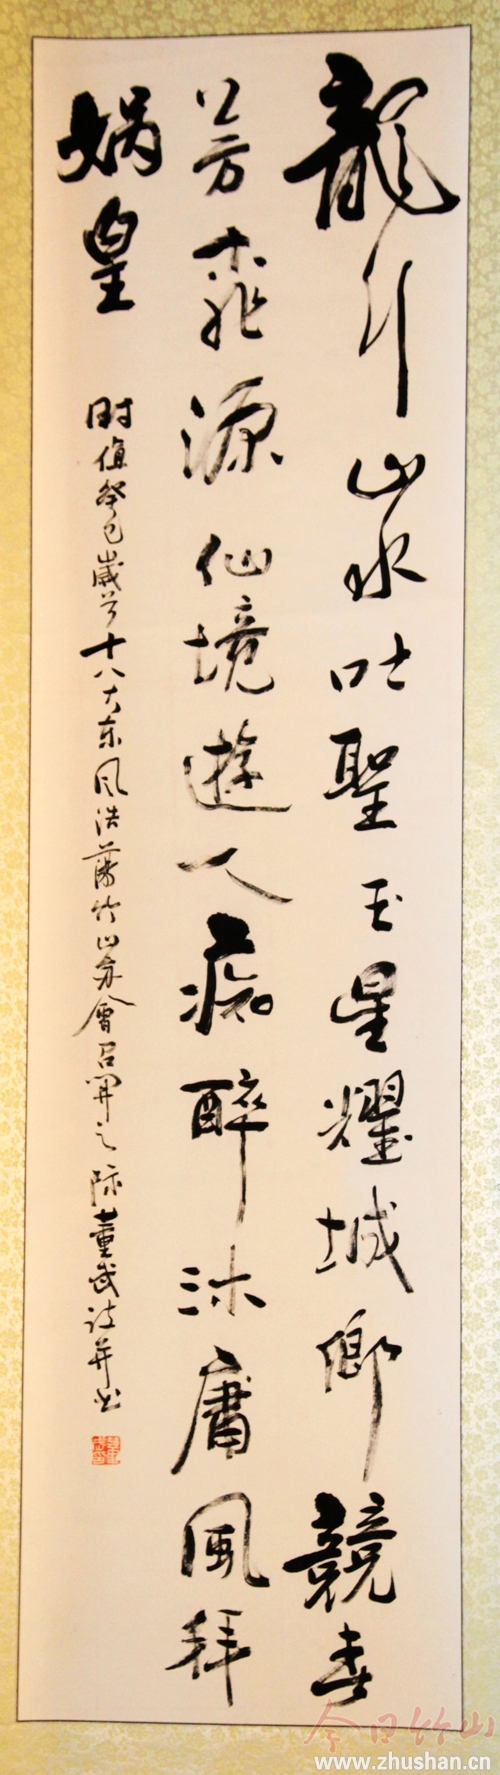 龍行山水吐聖玉星耀城鄉競春
芳桃源仙境遊人痴醉沐庸風拜
媧皇
時值癸巳歲首十八大東風浩蕩竹山會召開之際董武詩並書
今日竹山
www.zhushan.cn